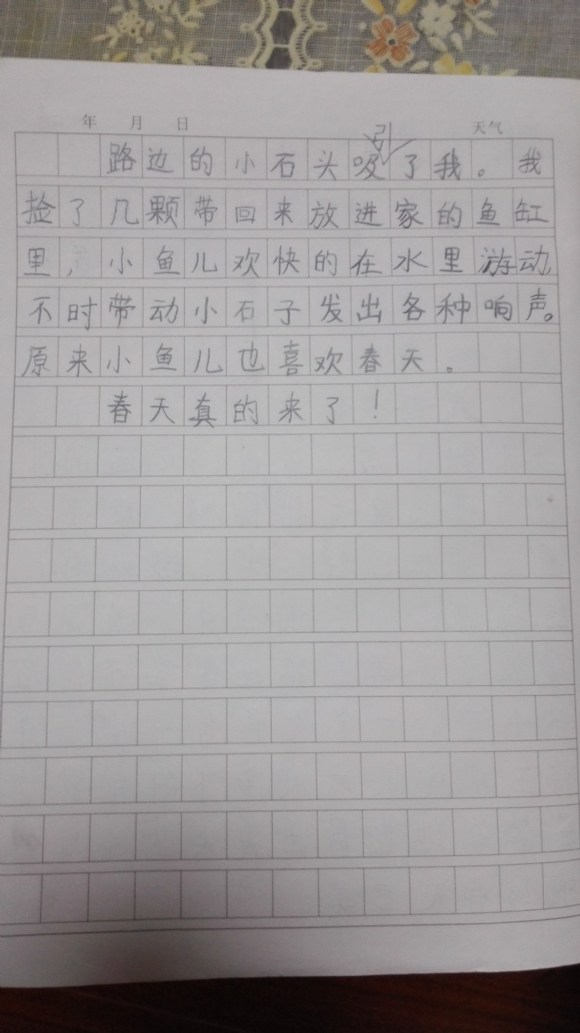 年 月 日 天气
路边的小石头吸引了我。我
捡了几颗带回来放进家的鱼缸
里，小鱼儿欢快的在水里游动，
不时带动小石子发出各种响声。
原来小鱼儿也喜欢春天。
春天真的来了！